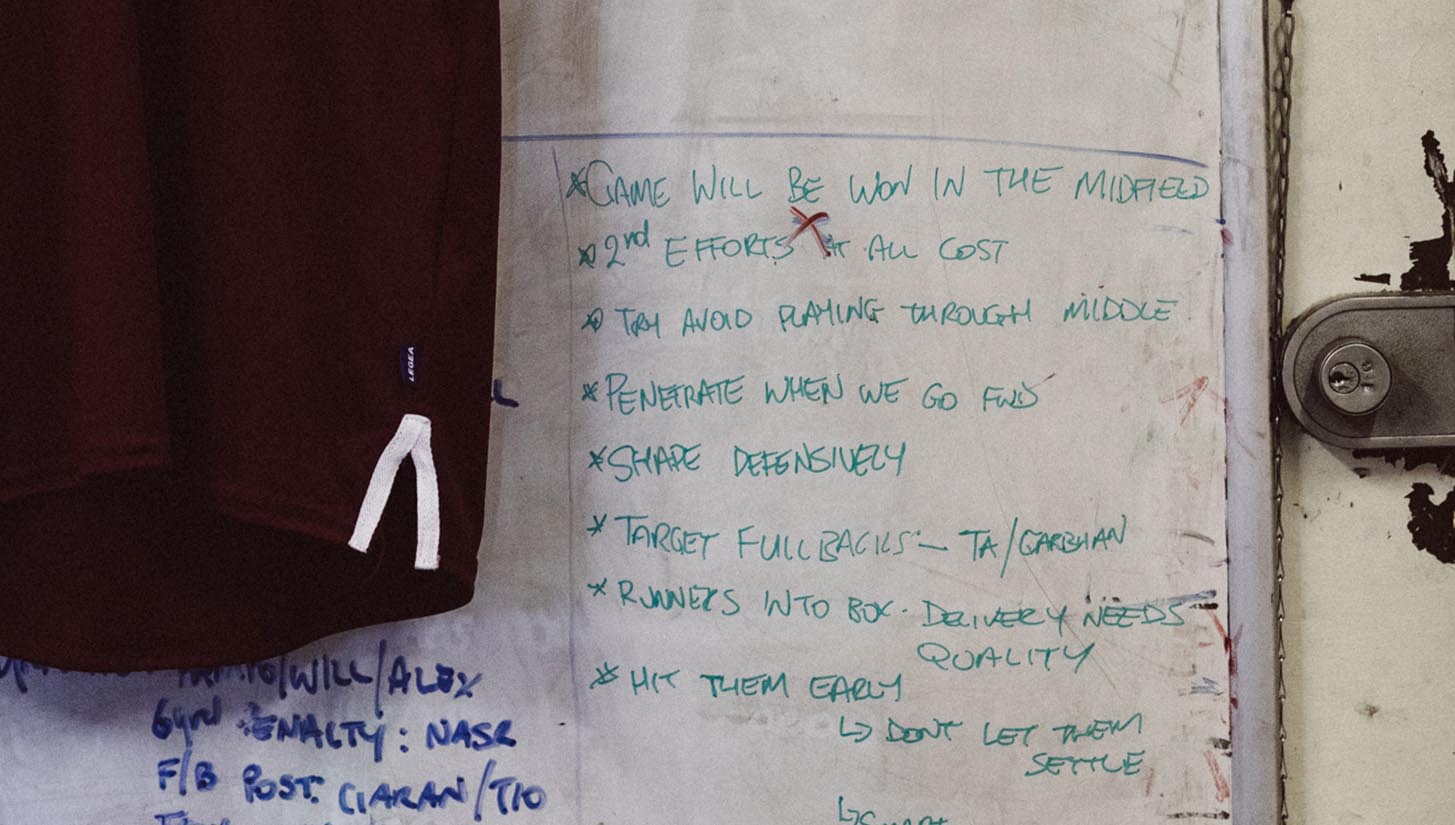 LEGEA
*GAME WILL BE WON IN THE MIDFIELD
* 2nd EFFORTS AT ALL COST
* TRY AVOID PLAYING THROUGH MIDDLE.
*PENETRATE WHEN WE GO FWD
*SHAPE DEFENSIVELY
* TARGET FULLBACKS - TA/GARBHAN
* RUNNERS INTO BOX. DELIVERY NEEDS
QUALITY
* HIT THEM EARLY
↳ DONT LET THEM
SETTLE
/WILL/ALEX
6yrd PENALTY: NASR
F/B POST: CIARAN/TIO